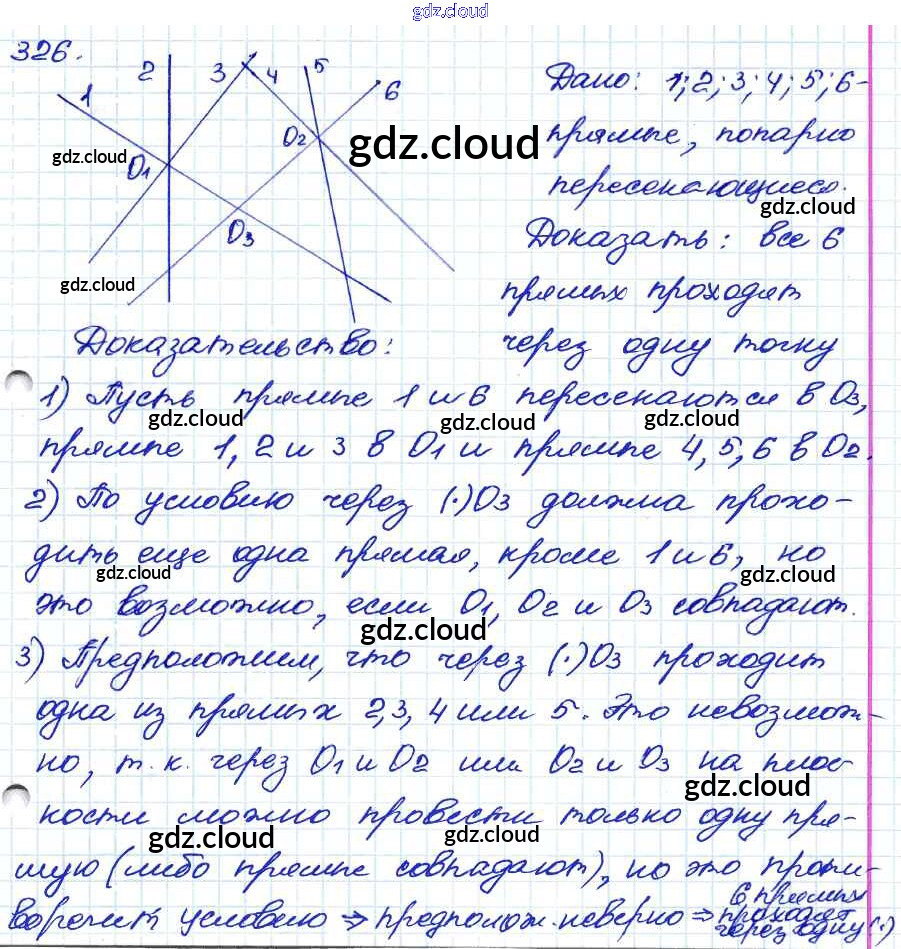 gdz.cloud
326.
1 2 3 4 5 6
O1 O2 O3
gdz.cloud
gdz.cloud
gdz.cloud
Дано: 1; 2; 3; 4; 5; 6-
прямые, попарно
пересекающиеся.
gdz.cloud
Доказать: все 6
прямых проходят
через одну точку
Доказательство:
1) Пусть прямые 1 и 6 пересекаются в O3,
gdz.cloud gdz.cloud gdz.cloud
прямые 1, 2 и 3 в O1 и прямые 4, 5, 6 в O2.
2) По условию через (·)O3 должна прохо-
дить еще одна прямая, кроме 1 и 6, но
gdz.cloud gdz.cloud
это возможно, если O1, O2 и O3 совпадают.
gdz.cloud
3) Предположим, что через (·)O3 проходит
одна из прямых 2, 3, 4 или 5. Это невозмож-
но, т.к. через O1 и O2 или O2 и O3 на плос-
gdz.cloud
кости можно провести только одну пря-
gdz.cloud gdz.cloud
мую (либо прямые совпадают), но это проти-
воречит условию ⇒ предполож. неверно ⇒ 6 прямых
проходят
через одну (·)